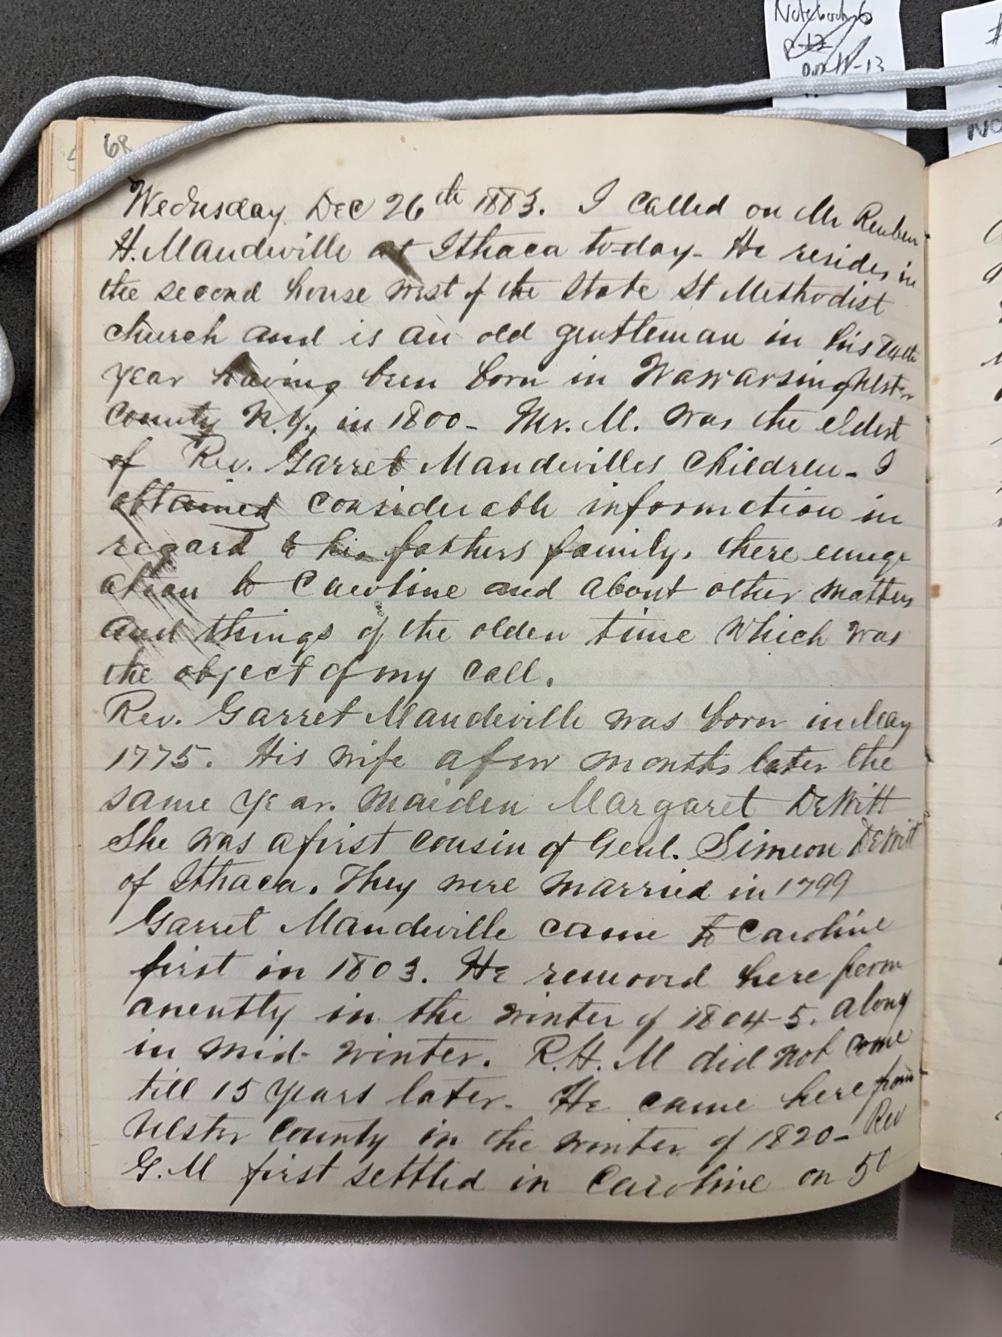 Notebook 6
68
Wednesday Dec 26th 1883. I called on Mr Reuben
H. Mandeville at Ithaca today - He resides in
the second house west of the State St Methodist
church and is an old gentleman in his 84th
year having been born in Wawarsing Ulster
County N.Y., in 1800 - Mr. M. was the eldest
of Rev. Garret Mandevilles children - I
obtained considerable information in
regard to his fathers family, there emigr
ation to Caroline and about other matters
and things of the olden time which was
the object of my call.
Rev. Garret Mandeville was born in May
1775. His wife a few months later the
same year. maiden Margaret DeWitt
She was a first cousin of Genl. Simeon DeWitt
of Ithaca. They were married in 1799
Garret Mandeville came to Caroline
first in 1803. He removed here perm
anently in the winter of 1804-5. along
in mid-winter. R.H.M did not come
till 15 years later - He came here from
Ulster County in the winter of 1820 - Rev
G.M first settled in Caroline on 50